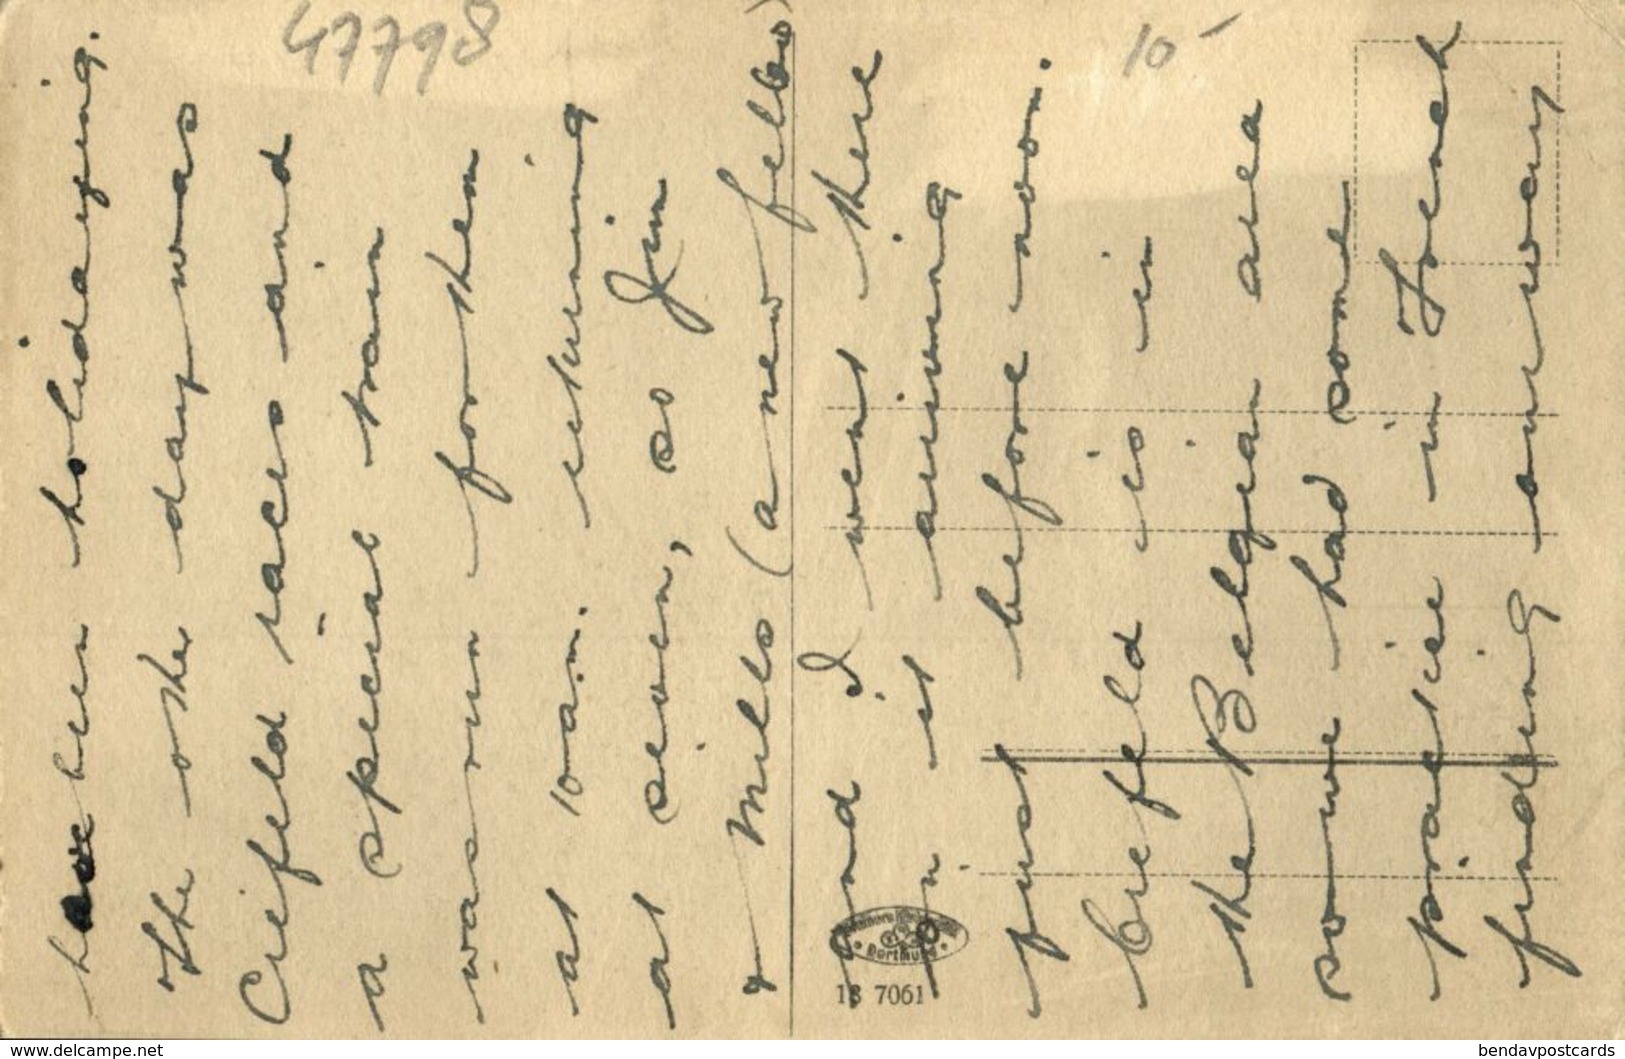 have been holidaying.
The other day was
Crefeld races and
a special train
was run for them
at 10 am. returning
at seven, so Jim
& Mills (a new fellow)
and I went there
in it arriving
just before noon.
Crefeld is in
the Belgian area
so we had some
practice in French
finding our way
47798
10-
Dortmund
18 7061
www.delcampe.net
bendavpostcards